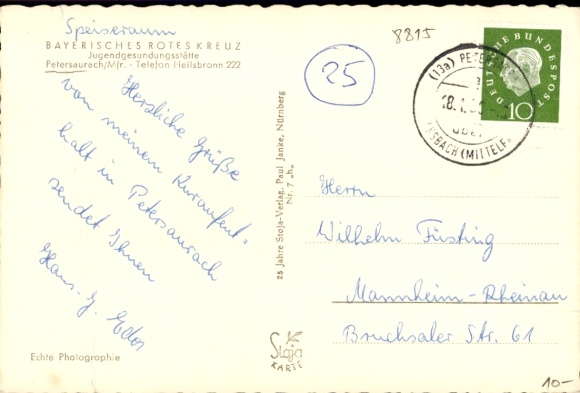 Speiseraum
BAYERISCHES ROTES KREUZ
Jugendgesundungsstätte
Petersaurach/Mfr. - Telefon Heilsbronn 222
8815
25
DEUTSCHE BUNDESPOST
10
(13a) PETERSAURACH
ÜBER
ANSBACH (MITTELFR
Herzliche Grüße
von meinem Kuraufent-
halt in Petersaurach
sendet Ihnen
Hans-J.
25 Jahre Stoja-Verlag, Paul Janke, Nürnberg
Nr. 7 „h“
Herrn
Wilhelm Füsting
Mannheim-Rheinau
Bruchsaler Str. 61
Echte Photographie
Stoja
KARTE
10-